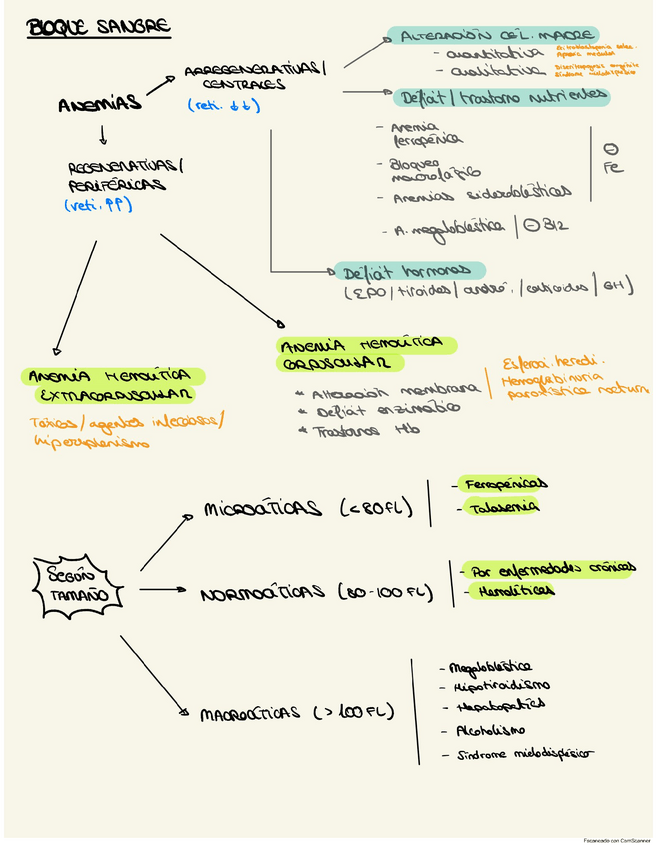 BLOQUE SANGRE
ANEMIAS
ARREGENERATIVAS/
CENTRALES
(reti. ↓↓)
ALTERACIÓN CÉL. MADRE
- cuantitativa
Aplasia medular
- cualitativa
Síndrome mielodisplásico
Déficit/trastorno nutrientes
- Anemia
ferropénica
- Bloqueo
macrofágico
- Anemias sideroblásticas
⊖
Fe
- A. megaloblástica | ⊖ B12
Déficit hormonas
(EPO/tiroides/andró./corticoides/GH)
REGENERATIVAS/
PERIFÉRICAS
(reti. ↑↑)
ANEMIA HEMOLÍTICA
EXTRACORPUSCULAR
Tóxicos/agentes infecciosos/
hiperesplenismo
ANEMIA HEMOLÍTICA
CORPUSCULAR
* Alteración membrana
* Déficit enzimático
* Trastornos Hb
Esferoci. heredi.
Hemoglobinuria
paroxística nocturn
SEGÚN
TAMAÑO
MICROCÍTICAS (<80FL)
- Ferropénicas
- Talasemia
NORMOCÍTICAS (80-100 FL)
- Por enfermedades crónicas
- Hemolíticas
MACROCÍTICAS (>100 FL)
- Megaloblástica
- Hipotiroidismo
- Hepatopatías
- Alcoholismo
- Síndrome mielodisplásico
Escaneado con CamScanner